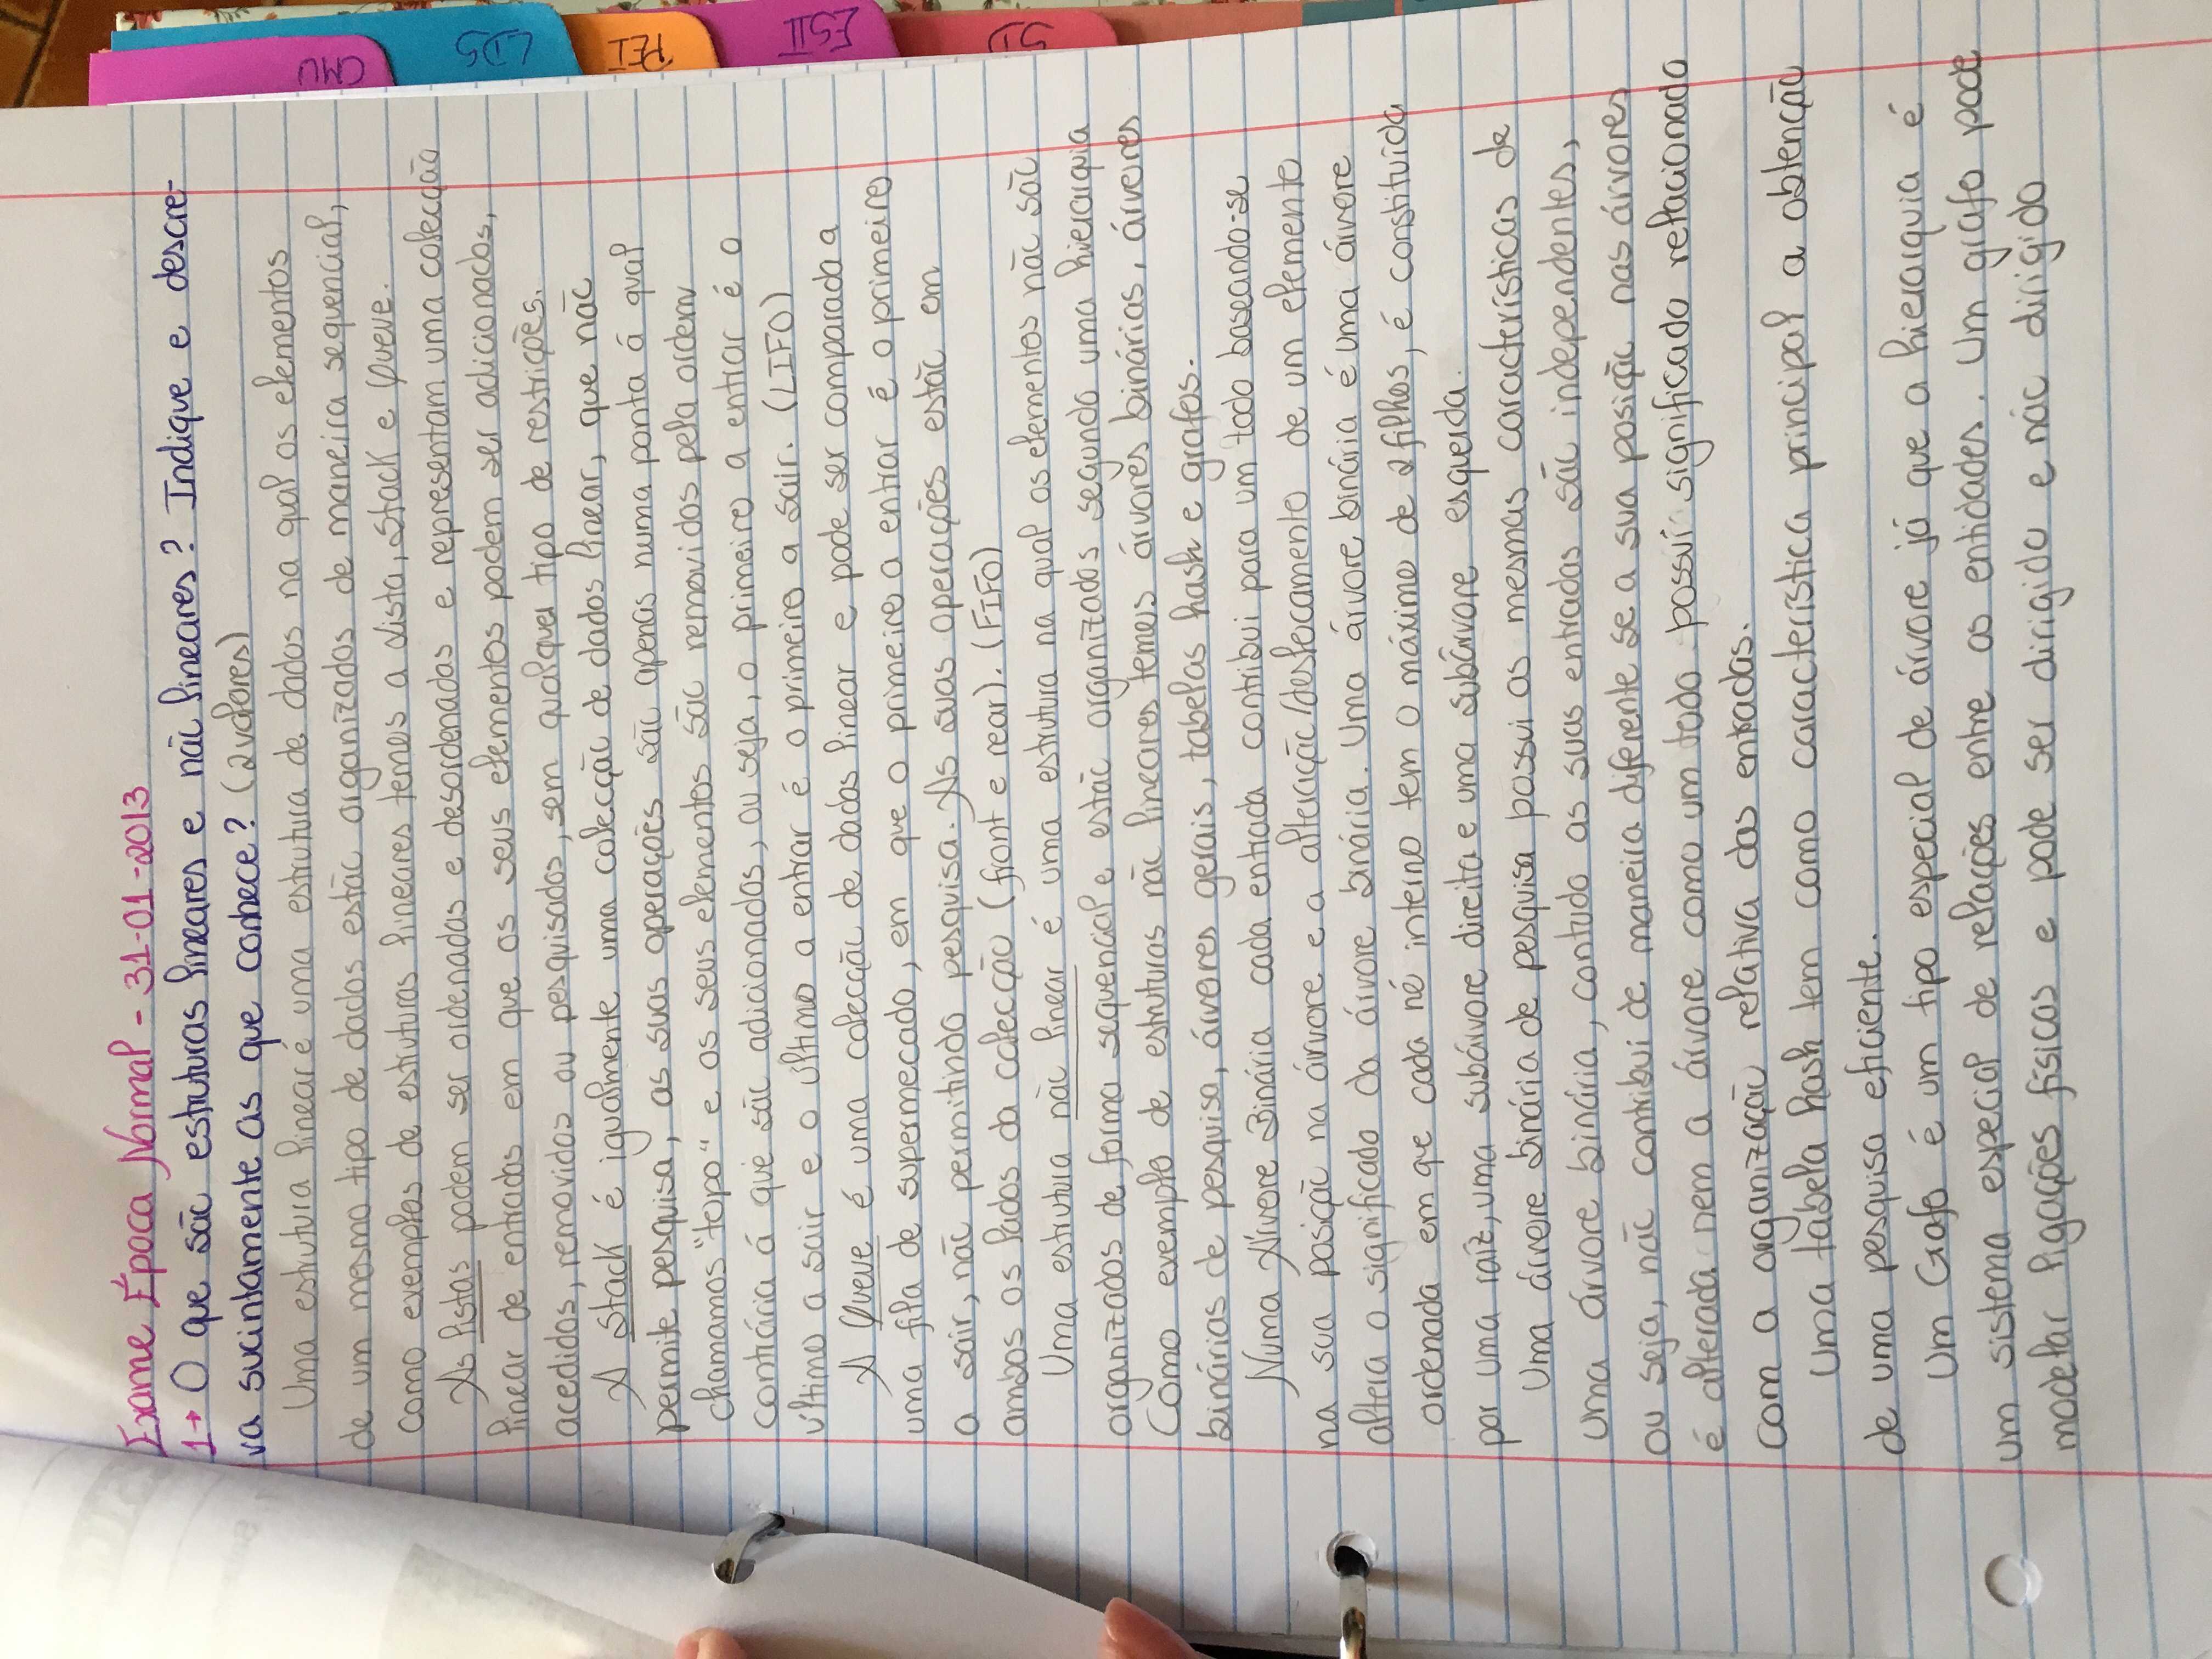 Exame Época Normal - 31-01-2013
1→ O que são estruturas lineares e não lineares? Indique e descre-
va sucintamente as que conhece? (2valores)
Uma estrutura linear é uma estrutura de dados na qual os elementos
de um mesmo tipo de dados estão organizados de maneira sequencial,
como exemplos de estruturas lineares temos a Lista, Stack e Queue.
As listas podem ser ordenadas e desordenadas e representam uma colecção
linear de entradas em que os seus elementos podem ser adicionados,
acedidos, removidos ou pesquisados, sem qualquer tipo de restrições.
A Stack é igualmente uma colecção de dados linear, que não
permite pesquisa, as suas operações são apenas numa ponta á qual
chamamos "topo" e os seus elementos são removidos pela ordem
contrária á que são adicionados, ou seja, o primeiro a entrar é o
último a sair e o último a entrar é o primeiro a sair. (LIFO)
A Queue é uma colecção de dados linear e pode ser comparada a
uma fila de supermecado, em que o primeiro a entrar é o primeiro
a sair, não permitindo pesquisa. As suas operações estão em
ambos os lados da colecção (front e rear). (FIFO)
Uma estrutura não linear é uma estrutura na qual os elementos não são
organizados de forma sequencial e estão organizados segundo uma hierarquia
Como exemplo de estruturas não lineares temos árvores binárias, árvores
binárias de pesquisa, árvores gerais, tabelas hash e grafos.
Numa Árvore Binária cada entrada contribui para um todo baseando-se
na sua posição na árvore e a alteração/deslocamento de um elemento
altera o significado da árvore binária. Uma árvore binária é uma árvore
ordenada em que cada nó interno tem o máximo de 2 filhos, é constituída
por uma raíz, uma subárvore direita e uma subárvore esquerda.
Uma árvore binária de pesquisa possui as mesmas características de
uma árvore binária, contudo as suas entradas são independentes,
ou seja, não contribui de maneira diferente se a sua posição nas árvores
é alterada nem a árvore como um todo possui significado relacionado
com a organização relativa das entradas.
Uma tabela hash tem como característica principal a obtenção
de uma pesquisa eficiente.
Um Grafo é um tipo especial de árvore já que a hierarquia é
um sistema especial de relações entre as entidades. Um grafo pode
modelar ligações físicas e pode ser dirigido e não dirigido
CMU
LDS
PEI
ESII
SD